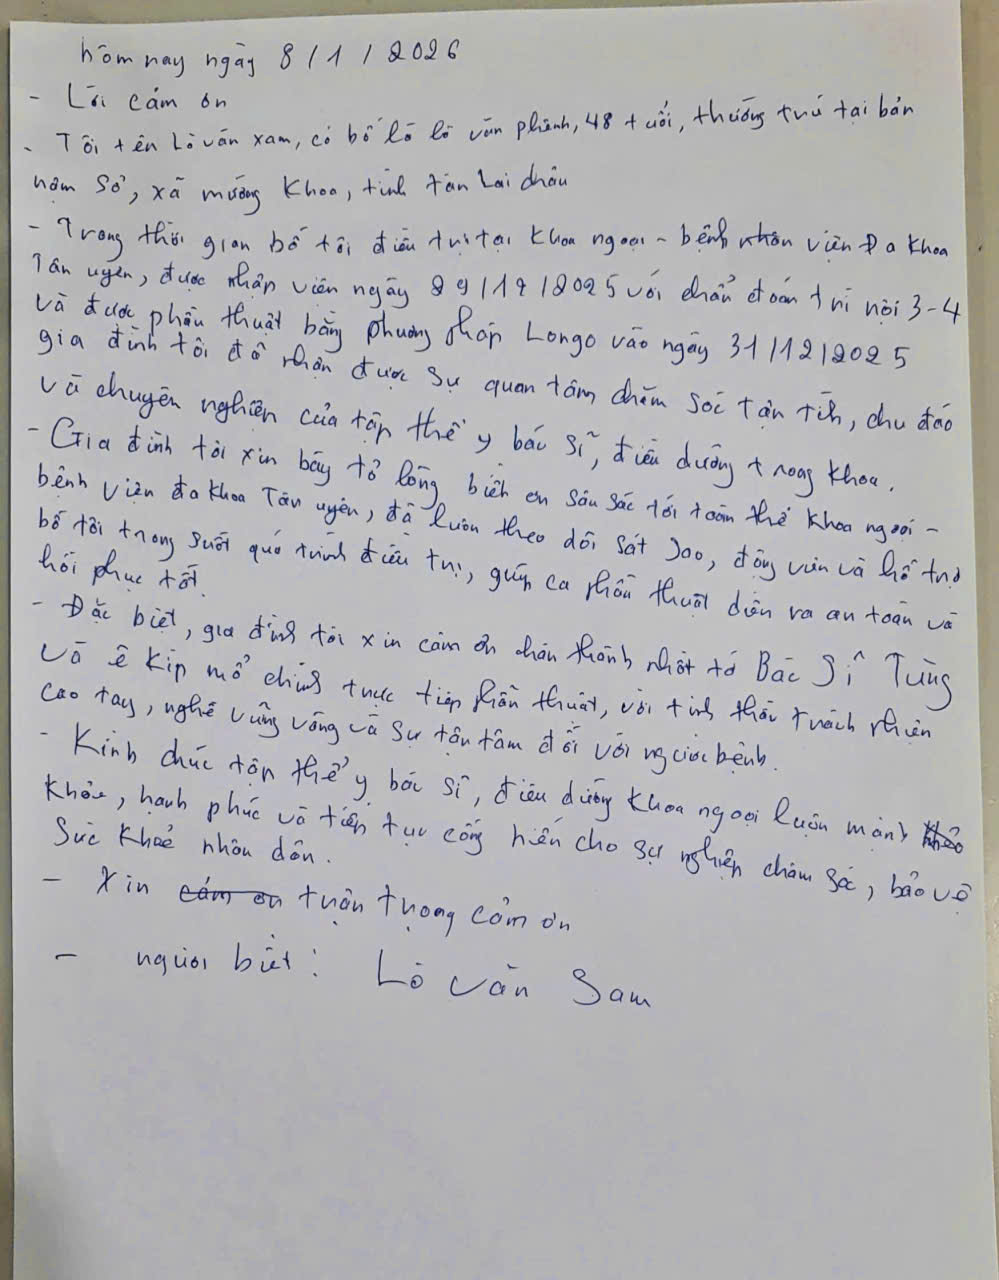 hôm nay ngày 8/1/2026
- Lời cảm ơn
- Tôi tên Lò văn xam, có bố là lò văn phành, 48 tuổi, thường trú tại bản
nậm sỏ, xã mường Khoa, tỉnh tỉnh Lai châu
- Trong thời gian bố tôi điều trị tại Khoa ngoại - bệnh viện Đa Khoa
Tân uyên, được nhập viện ngày 29/12/2025 với chẩn đoán trĩ nội 3-4
và được phẫu thuật bằng phương pháp Longo vào ngày 31/12/2025
gia đình tôi đã nhận được sự quan tâm chăm sóc tận tình, chu đáo
và chuyên nghiện của tập thể y bác sĩ, điều dưỡng trong khoa.
- Gia đình tôi xin bày tỏ lòng biết ơn sâu sắc tới toàn thể Khoa ngoại -
bệnh viện đa khoa Tân uyên, đã luôn theo dõi sát sao, động viên và hỗ trợ
bố tôi trong suốt quá trình điều trị, giúp ca phẫu thuật diễn ra an toàn và
hồi phục tốt.
- Đặc biệt, gia đình tôi xin cảm ơn chân thành nhất tớ Bác Sĩ Tùng
và ê kíp mổ chính trực tiếp phẫu thuật, với tinh thần trách nhiện
cao tay, nghề vững vàng và sự tận tâm đối với người bệnh.
- Kính chúc tập thể y bác sĩ, điều dưỡng Khoa ngoại luôn mạnh
khỏe, hạnh phúc và tiếp tục cống hiến cho sự nghiệp chăm sóc, bảo vệ
sức khoẻ nhân dân.
- Xin cám ơn trận trọng cảm ơn
- người biết: Lò văn Sam